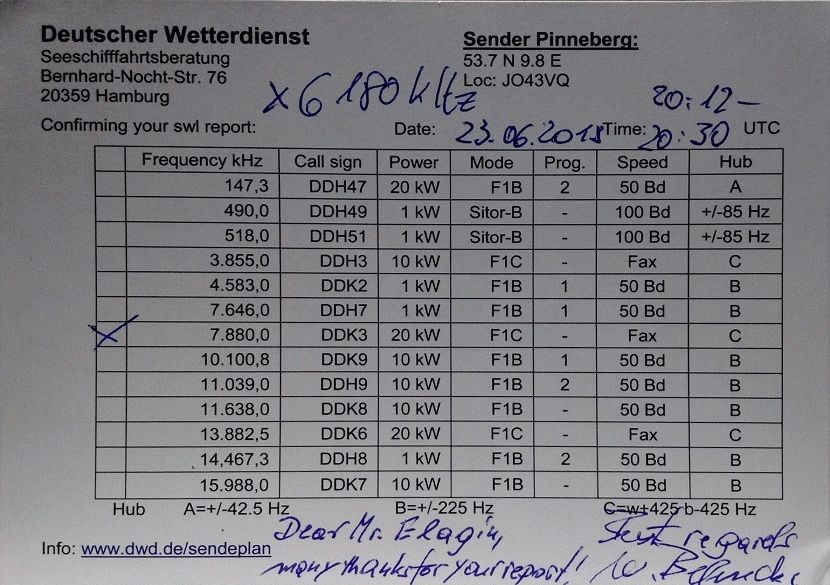 Deutscher Wetterdienst
Seeschifffahrtsberatung
Bernhard-Nocht-Str. 76
20359 Hamburg
Sender Pinneberg:
53.7 N 9.8 E
Loc: JO43VQ
x 6180 kHz
20:12-
Confirming your swl report: Date: 23.06.2018 Time: 20:30 UTC
Frequency kHz Call sign Power Mode Prog. Speed Hub
147,3 DDH47 20 kW F1B 2 50 Bd A
490,0 DDH49 1 kW Sitor-B - 100 Bd +/-85 Hz
518,0 DDH51 1 kW Sitor-B - 100 Bd +/-85 Hz
3.855,0 DDH3 10 kW F1C - Fax C
4.583,0 DDK2 1 kW F1B 1 50 Bd B
7.646,0 DDH7 1 kW F1B 1 50 Bd B
x 7.880,0 DDK3 20 kW F1C - Fax C
10.100,8 DDK9 10 kW F1B 1 50 Bd B
11.039,0 DDH9 10 kW F1B 2 50 Bd B
11.638,0 DDK8 10 kW F1B - 50 Bd B
13.882,5 DDK6 20 kW F1C - Fax C
14,467,3 DDH8 1 kW F1B 2 50 Bd B
15.988,0 DDK7 10 kW F1B - 50 Bd B
Hub A=+/-42.5 Hz B=+/-225 Hz C=w+425 b-425 Hz
Dear Mr. Elagin,
many thanks for your report!
Best regards
Info: www.dwd.de/sendeplan